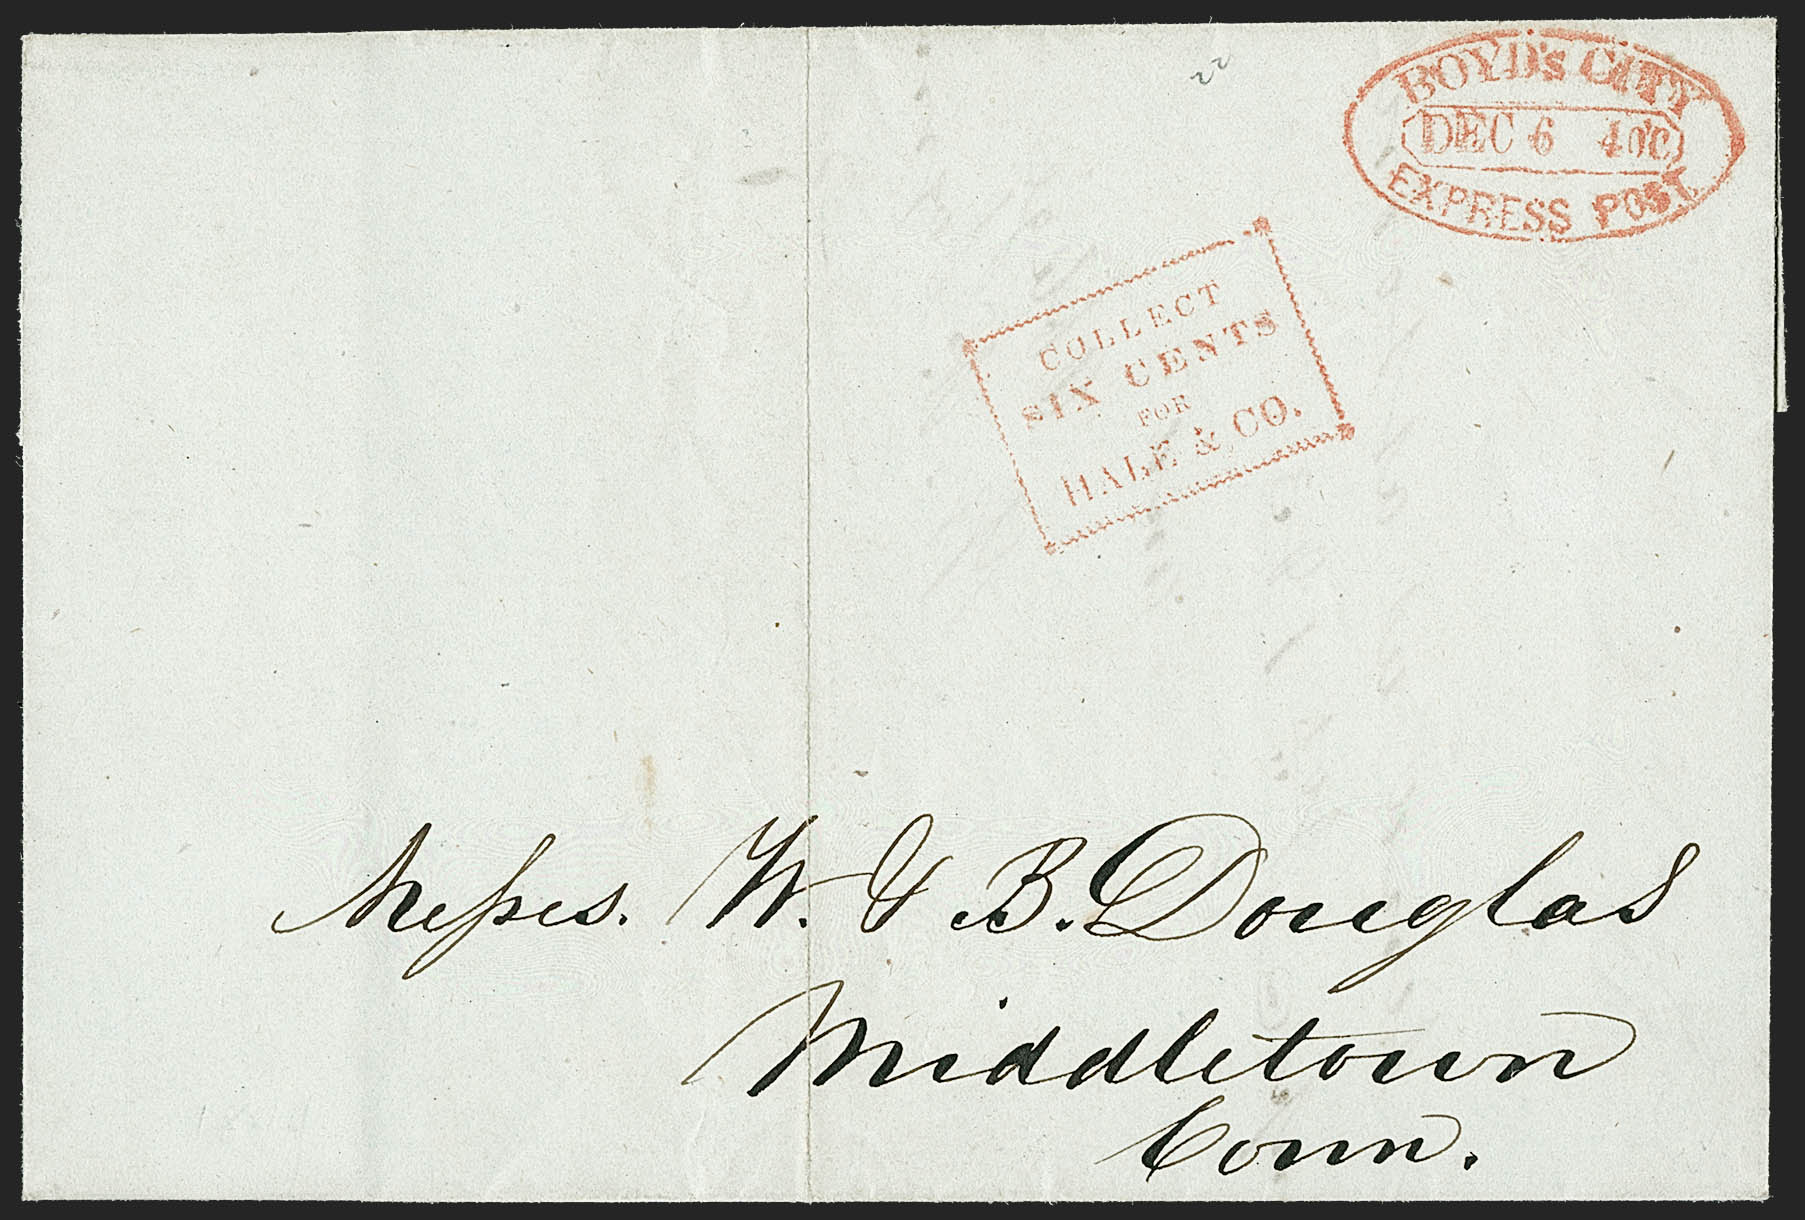 BOYD's CITY
DEC 6 4 O'C
EXPRESS POST.
COLLECT
SIX CENTS
FOR
HALE & CO.
Messrs. W. & B. Douglas
Middletown
Conn.